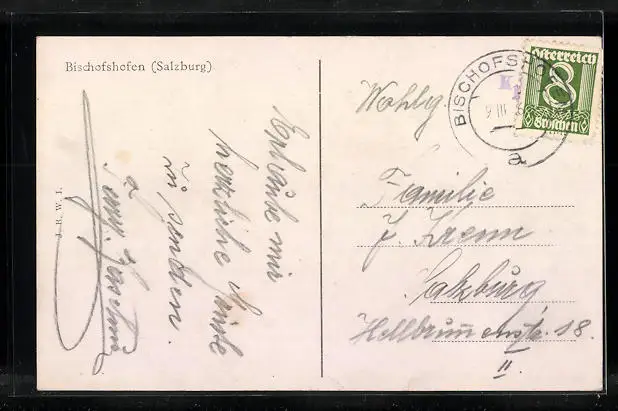 Bischofshofen (Salzburg)
J. B. W. I.
Erlaube mir
herzliche Grüsse
zu senden.
BISCHOFSHOF
9 III
a
Österreich
8
Groschen
Wohlg.
Familie
J. Krenn
Salzburg,
Hellbrunnerstr. 18.
II.